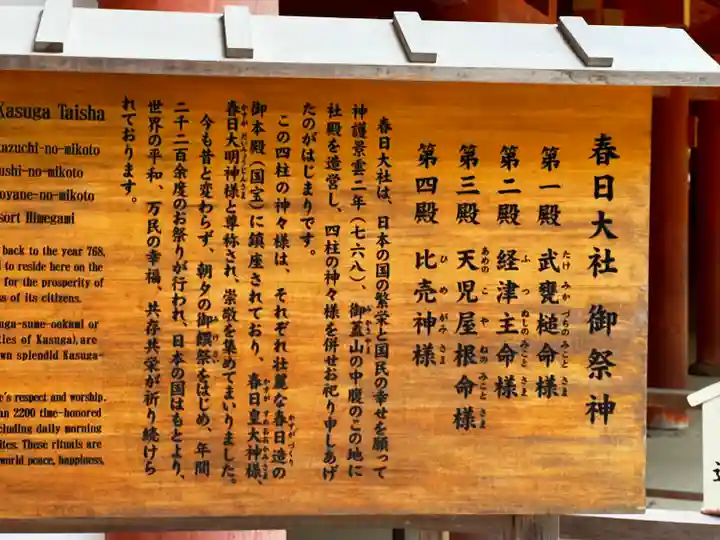 春日大社 御祭神
第一殿 武甕槌命様
第二殿 経津主命様
第三殿 天児屋根命様
第四殿 比売神様
春日大社は、日本の国の繁栄と国民の幸せを願って
神護景雲二年（七六八）、御蓋山の中腹のこの地に
社殿を造営し、四柱の神々様を併せお祀り申しあげ
たのがはじまりです。
この四柱の神々様は、それぞれ壮麗な春日造の
御本殿（国宝）に鎮座されており、春日皇大神様、
春日大明神様と尊称され、崇敬を集めてまいりました。
今も昔と変わらず、朝夕の御饌祭をはじめ、年間
二千二百余度のお祭りが行われ、日本の国はもとより、
世界の平和、万民の幸福、共存共栄が祈り続けら
れております。
Kasuga Taisha
azuchi-no-mikoto
ushi-no-mikoto
oyane-no-mikoto
sort Himegami
back to the year 768,
l to reside here on the
for the prosperity of
ss of its citizens.
uga-sume-ookami or
ties of Kasuga), are
wn splendid Kasuga-
e's respect and worship.
an 2200 time-honored
cluding daily morning
ites. These rituals are
world peace, happiness,